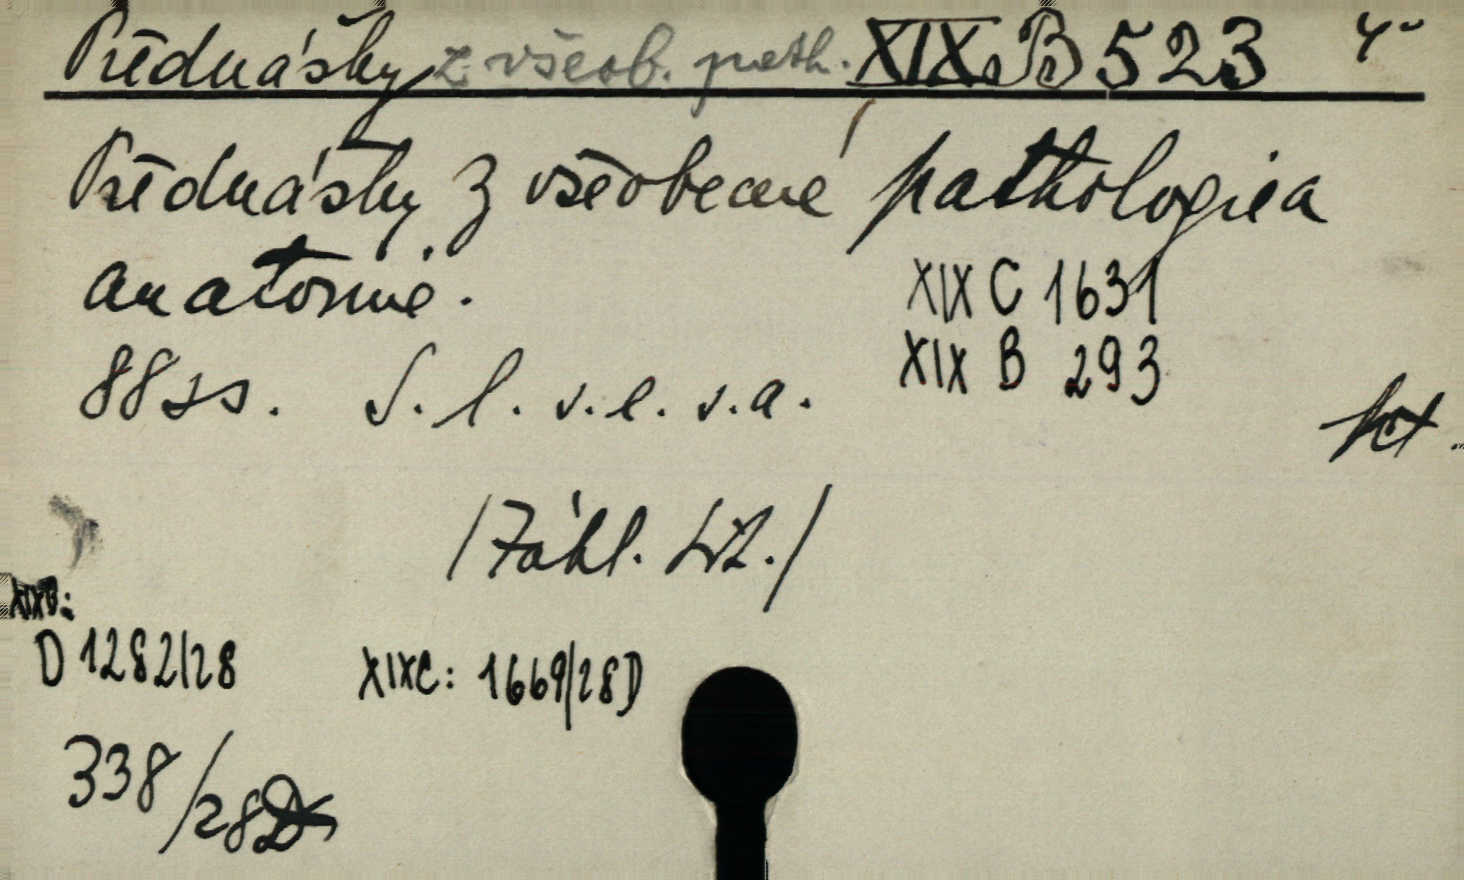 Přednášky z všeob. path. XIX B 523 4°
Přednášky z všeobecné pathologie a
anatomie.
XIX C 1631
XIX B 293
88 ss. S. l. s. e. s. a.
/Záhl. lit./
XIX B:
D 1282/28
XIX C: 1669/28 D
338/28 D